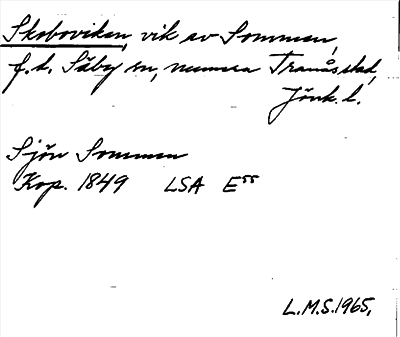 Skoboviken, vik av Sommen,
f.d. Säby sn, numera Tranås stad,
Jönk. l.
Sjön Sommen
Kop. 1849 LSA E55
L.M.S. 1965.